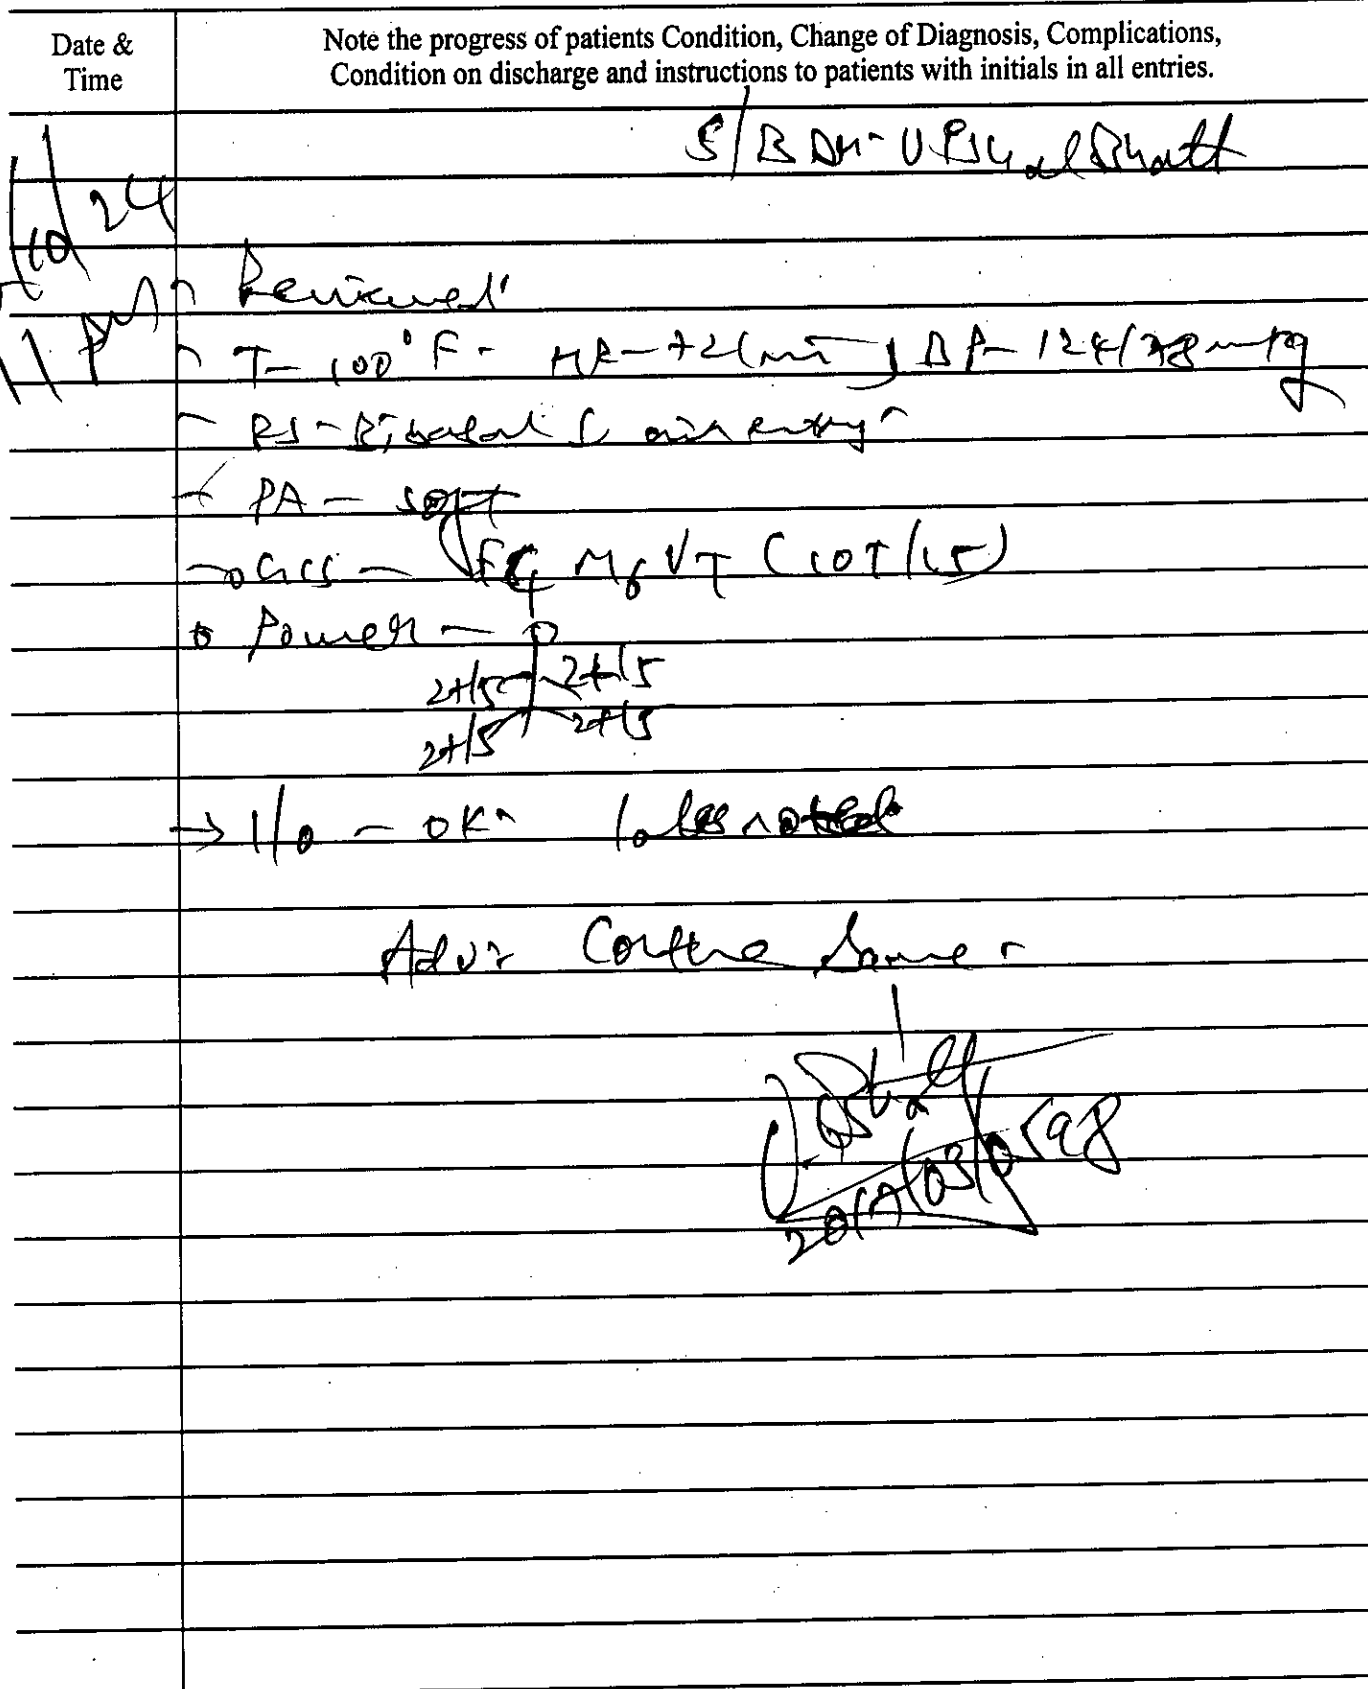 Date & Time
Note the progress of patients Condition, Change of Diagnosis, Complications,
Condition on discharge and instructions to patients with initials in all entries.
S/B DR. U
10/24
11 pm
Reviewed
T- 100°F - HR-72/min, BP- 124/78 mmHg
RS - Bibasal ↓ air entry
PA - soft
→ GCS - E4 M6 VT (10T/15)
Power -
2+/5 2+/5
2+/5 2+/5
→ I/O - OK. labs noted
Adv: Continue Same